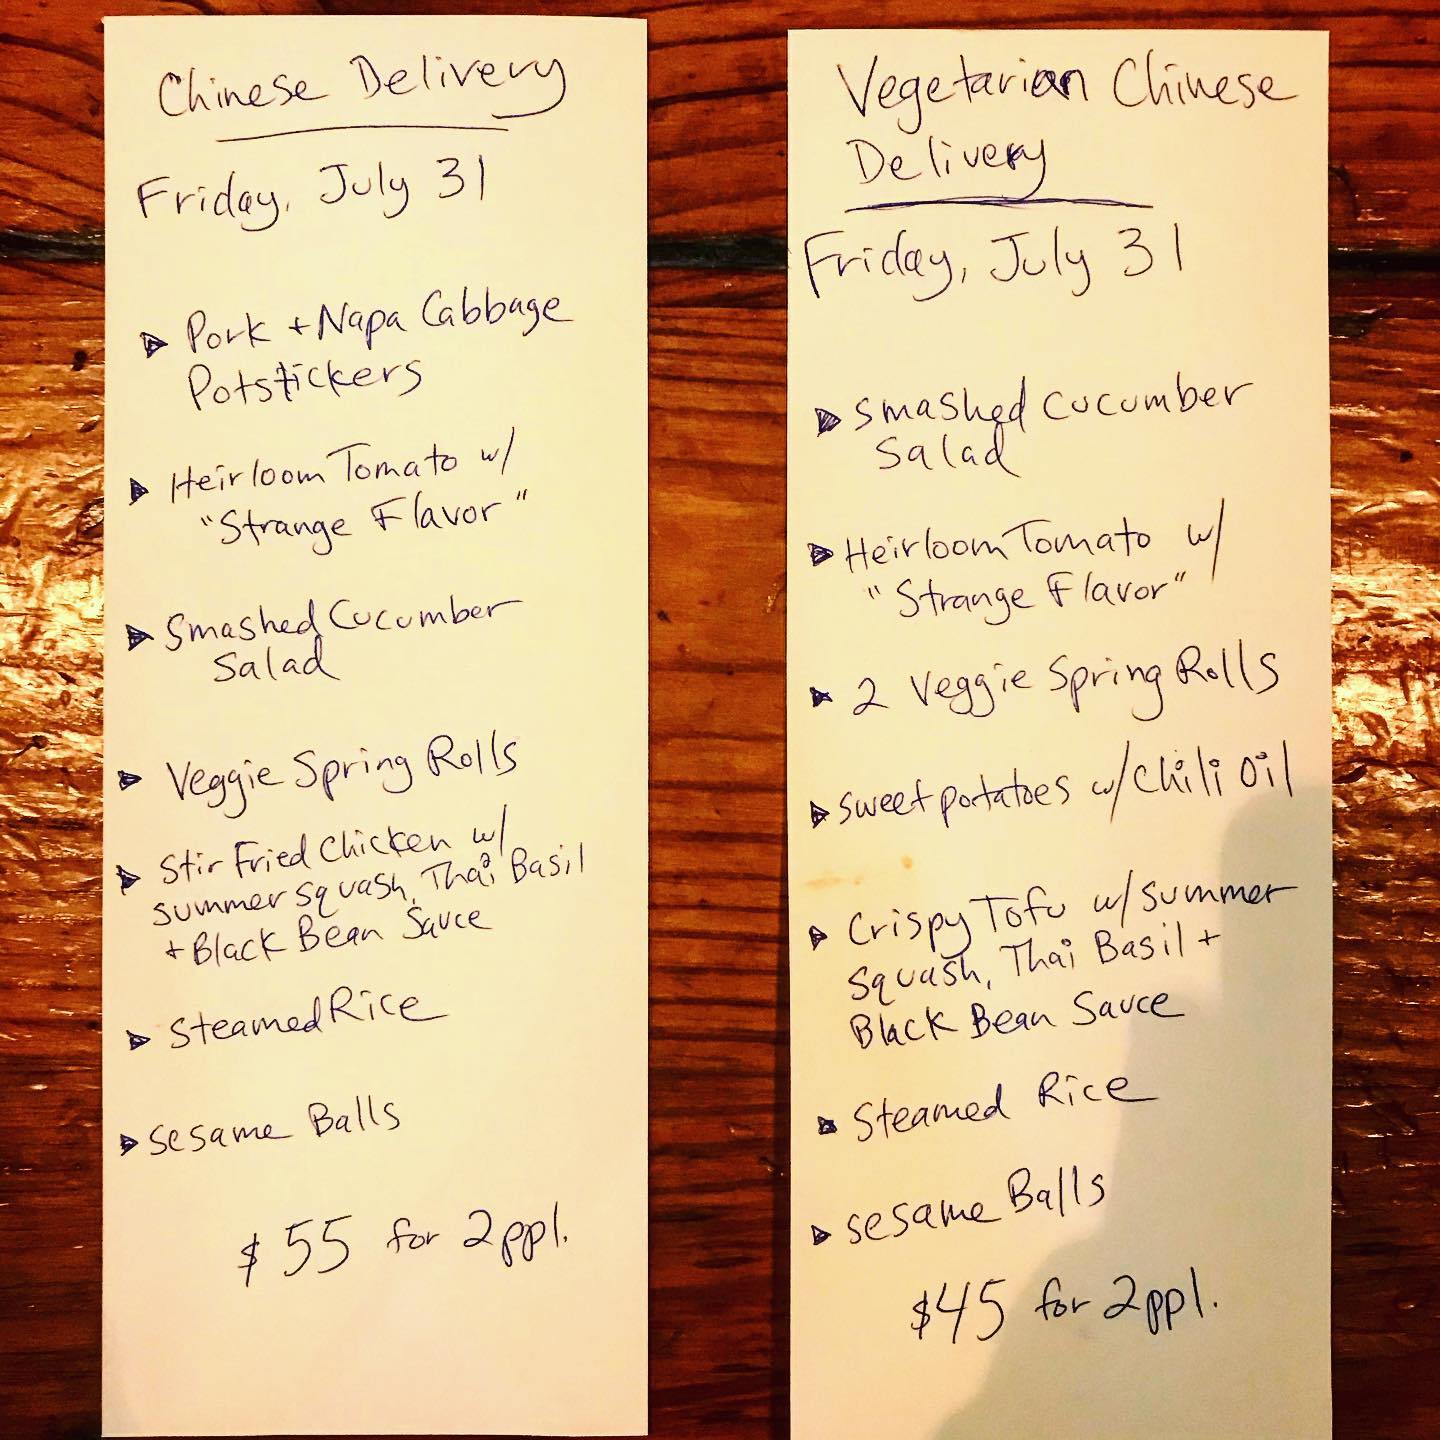 Chinese Delivery
Friday, July 31
Pork + Napa Cabbage
Potstickers
Heirloom Tomato w/
"Strange Flavor"
Smashed Cucumber
Salad
Veggie Spring Rolls
Stir Fried Chicken w/
summer squash, Thai Basil
+ Black Bean Sauce
Steamed Rice
Sesame Balls
$55 for 2ppl.
Vegetarian Chinese
Delivery
Friday, July 31
Smashed Cucumber
Salad
Heirloom Tomato w/
"Strange Flavor"
2 Veggie Spring Rolls
Sweet potatoes w/ Chili Oil
Crispy Tofu w/ summer
squash, Thai Basil +
Black Bean Sauce
Steamed Rice
Sesame Balls
$45 for 2ppl.